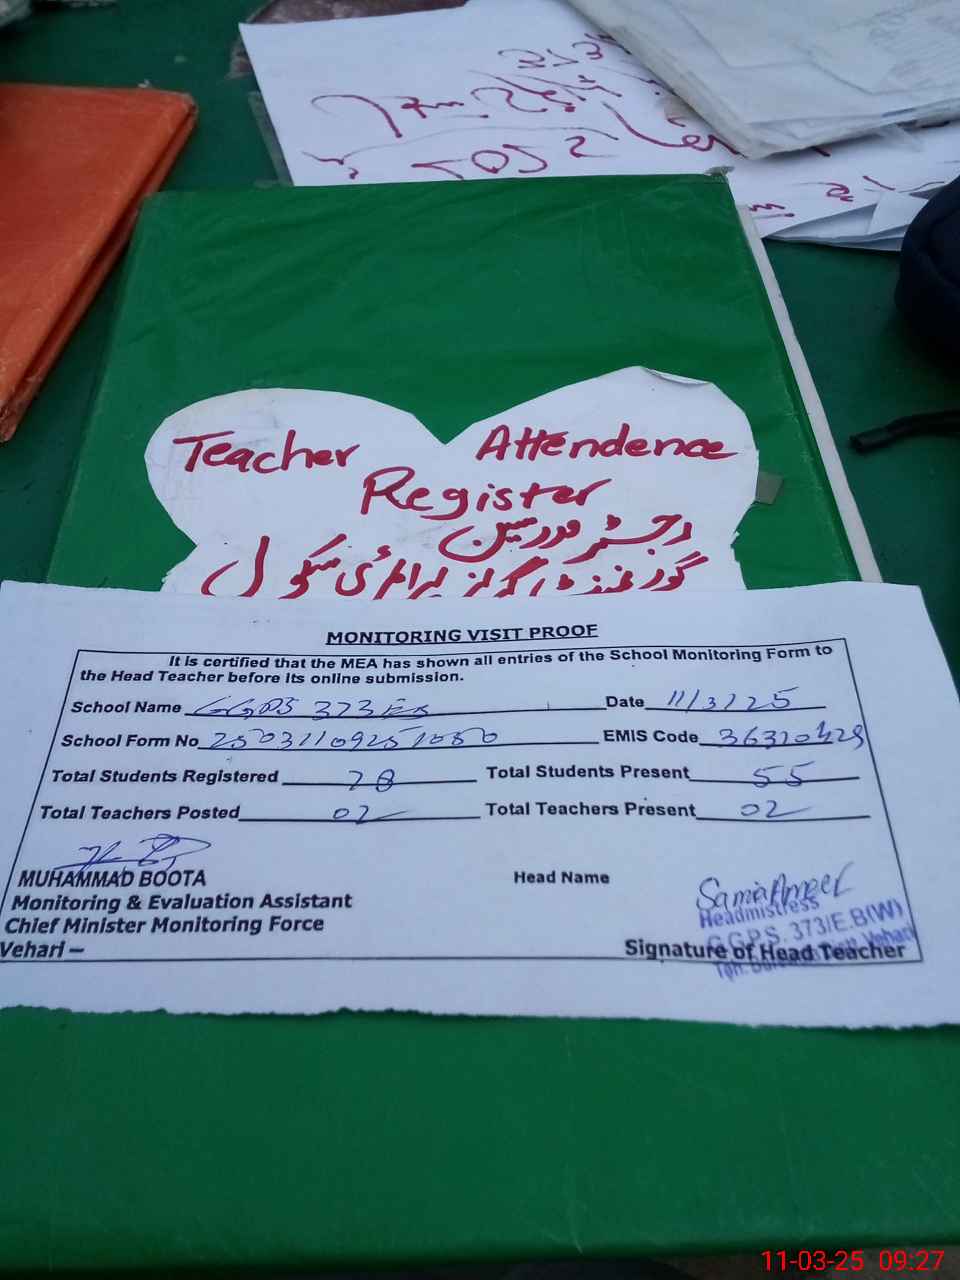 Teacher Attendence
Register
رجسٹر مدرسین
گورنمنٹ گرلز پرائمری سکول
MONITORING VISIT PROOF
It is certified that the MEA has shown all entries of the School Monitoring Form to
the Head Teacher before its online submission.
School Name GGPS 373 EB Date 11/3/25
School Form No EMIS Code
Total Students Registered Total Students Present 55
Total Teachers Posted 02 Total Teachers Present 02
MUHAMMAD BOOTA Head Name
Monitoring & Evaluation Assistant
Chief Minister Monitoring Force
Vehari –
Samia Ameer
Headmistress
G.G.P.S. 373/E.B(W)
Signature of Head Teacher
Teh: Burewala Distt. Vehari
11-03-25 09:27